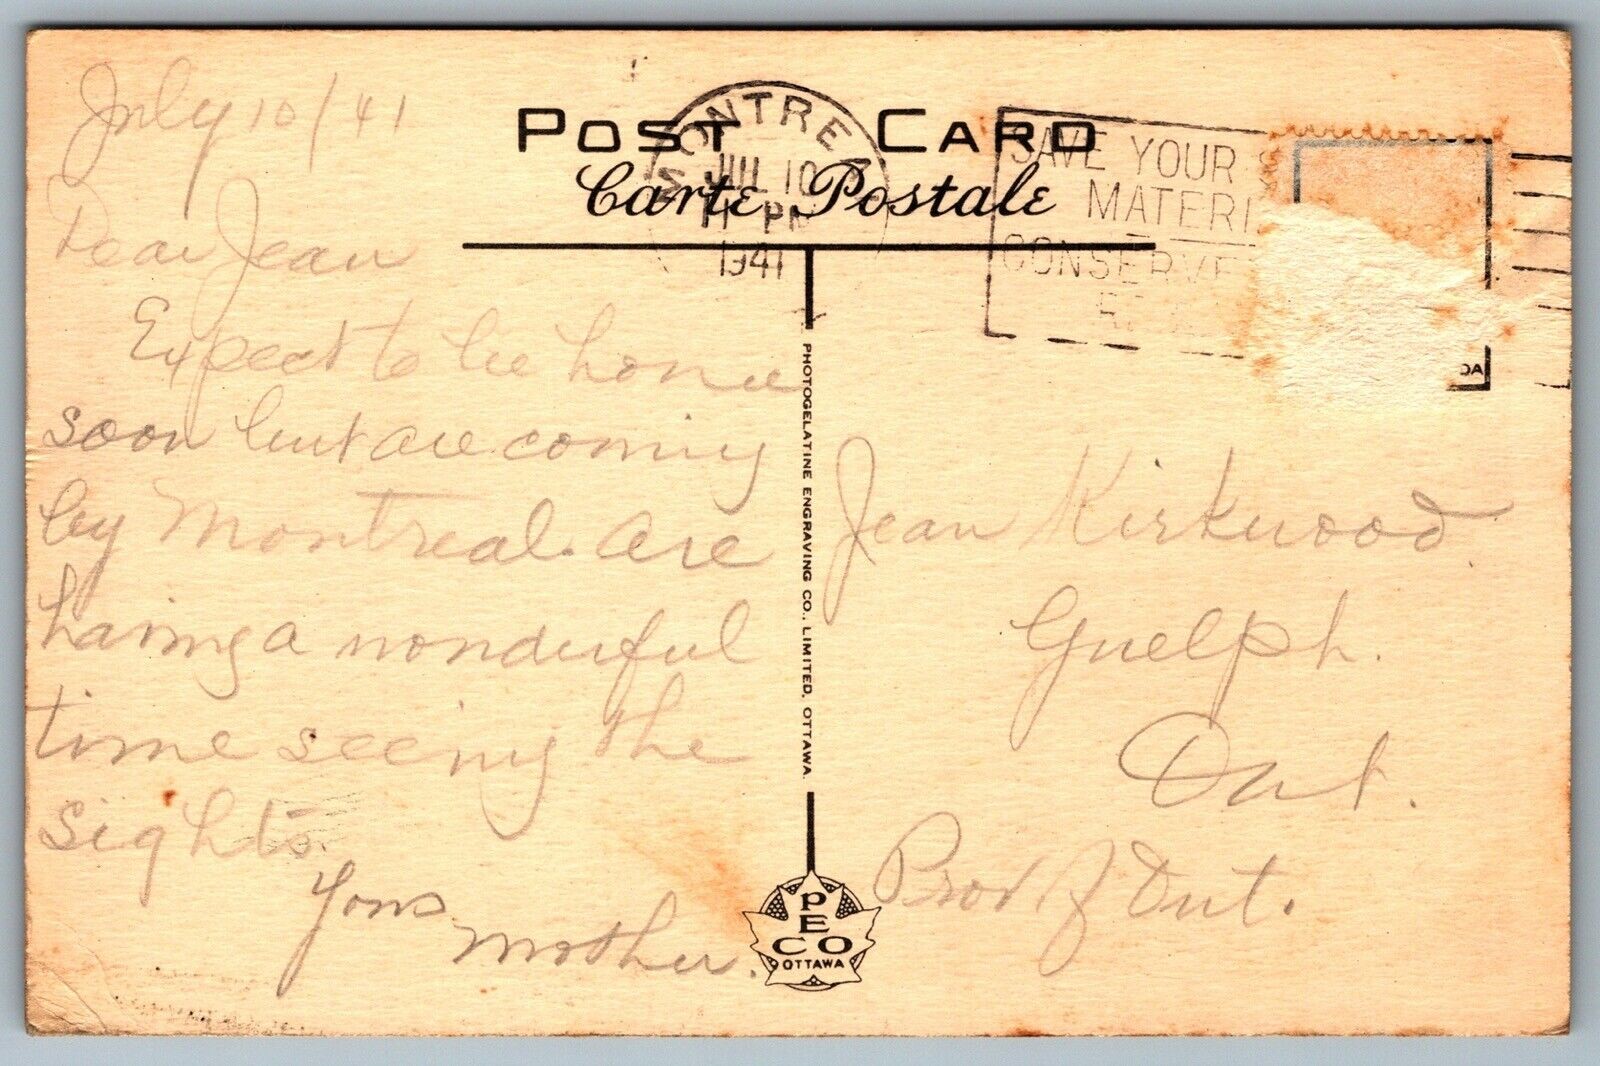 July 10/41
POST CARD
Carte Postale
MONTREA
JUL 10
11 PM
1941
SAVE YOUR
MATERI
CONSERVE
Dear Jean
Expect to be home
soon but are coming
by Montreal. are
having a wonderful
time seeing the
sights.
Yours
Mother.
PHOTOGELATINE ENGRAVING CO., LIMITED, OTTAWA.
Jean Kirkwood
Guelph.
Ont.
Prov of Ont.
PECO
OTTAWA